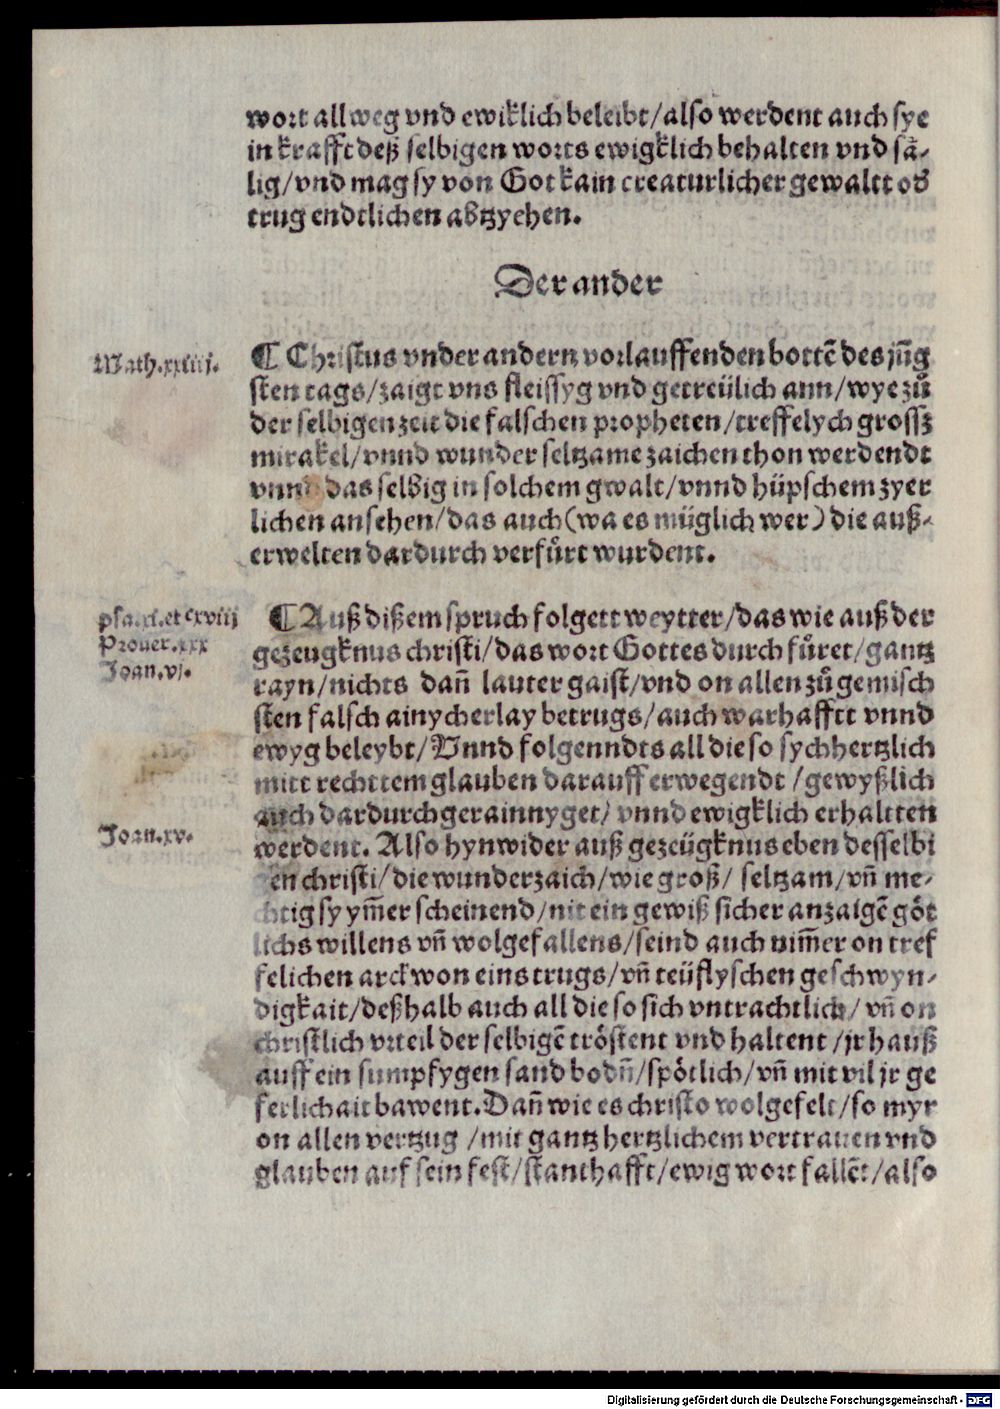 wort allweg vnd ewiklich beleibt/also werdent auch sye
in krafft deß selbigen worts ewigklich behalten vnd sä-
lig/vnd mag sy von Got kain creaturlicher gewaltt ob
trug endtlichen abtzyehen.
Der ander
Math.xxiiij.
¶ Christus vnder andern vorlauffenden bottē des jūg
sten tags/zaigt vns fleissyg vnd getreülich ann/wye zů
der selbigen zeit die falschen propheten/treffelych grossz
mirakel/vnnd wunder seltzame zaichen thon werdendt
vnnd das selbig in solchem gwalt/vnnd hüpschem zyer
lichen ansehen/das auch (wa es müglich wer) die auß-
erwelten dardurch verfůrt wurdent.
et cxviij
Prouer.xxx
Joan.vj.
¶ Auß dißem spruch folgett weytter/das wie auß der
gezeugknus christi/das wort Gottes durch fůret/gantz
rayn/nichts dañ lauter gaist/vnd on allen zůgemisch
sten falsch ainycherlay betrugs/auch warhafftt vnnd
ewyg beleybt/Vnnd folgenndts all die so sych hertzlich
mitt rechttem glauben darauff erwegendt/gewyßlich
auch dardurch gerainnyget/vnnd ewigklich erhaltten
Joan.xv.
werdent. Also hynwider auß gezeügknus eben desselbi
en christi/die wunderzaich/wie groß/ seltzam/vñ me-
chtig sy ym̄er scheinend/nit ein gewiß sicher anzaigē göt
lichs willens vñ wolgefallens/seind auch nim̄er on tref
felichen arckwon eins trugs/vñ teüflyschen geschwyn-
digkait/deßhalb auch all die so sich vntrachtlich/ vñ on
christlich vrteil der selbigē tröstent vnd haltent/jr hauß
auff ein sumpfygen sand bodñ/spötlich/vñ mit vil jr ge
ferlichait bawent. Dañ wie es christo wolgefelt/so myr
on allen vertzug/mit gantz hertzlichem vertrauen vnd
glauben auf sein fest/stanthafft/ewig wort fallēt/also
Digitalisierung gefördert durch die Deutsche Forschungsgemeinschaft - DFG